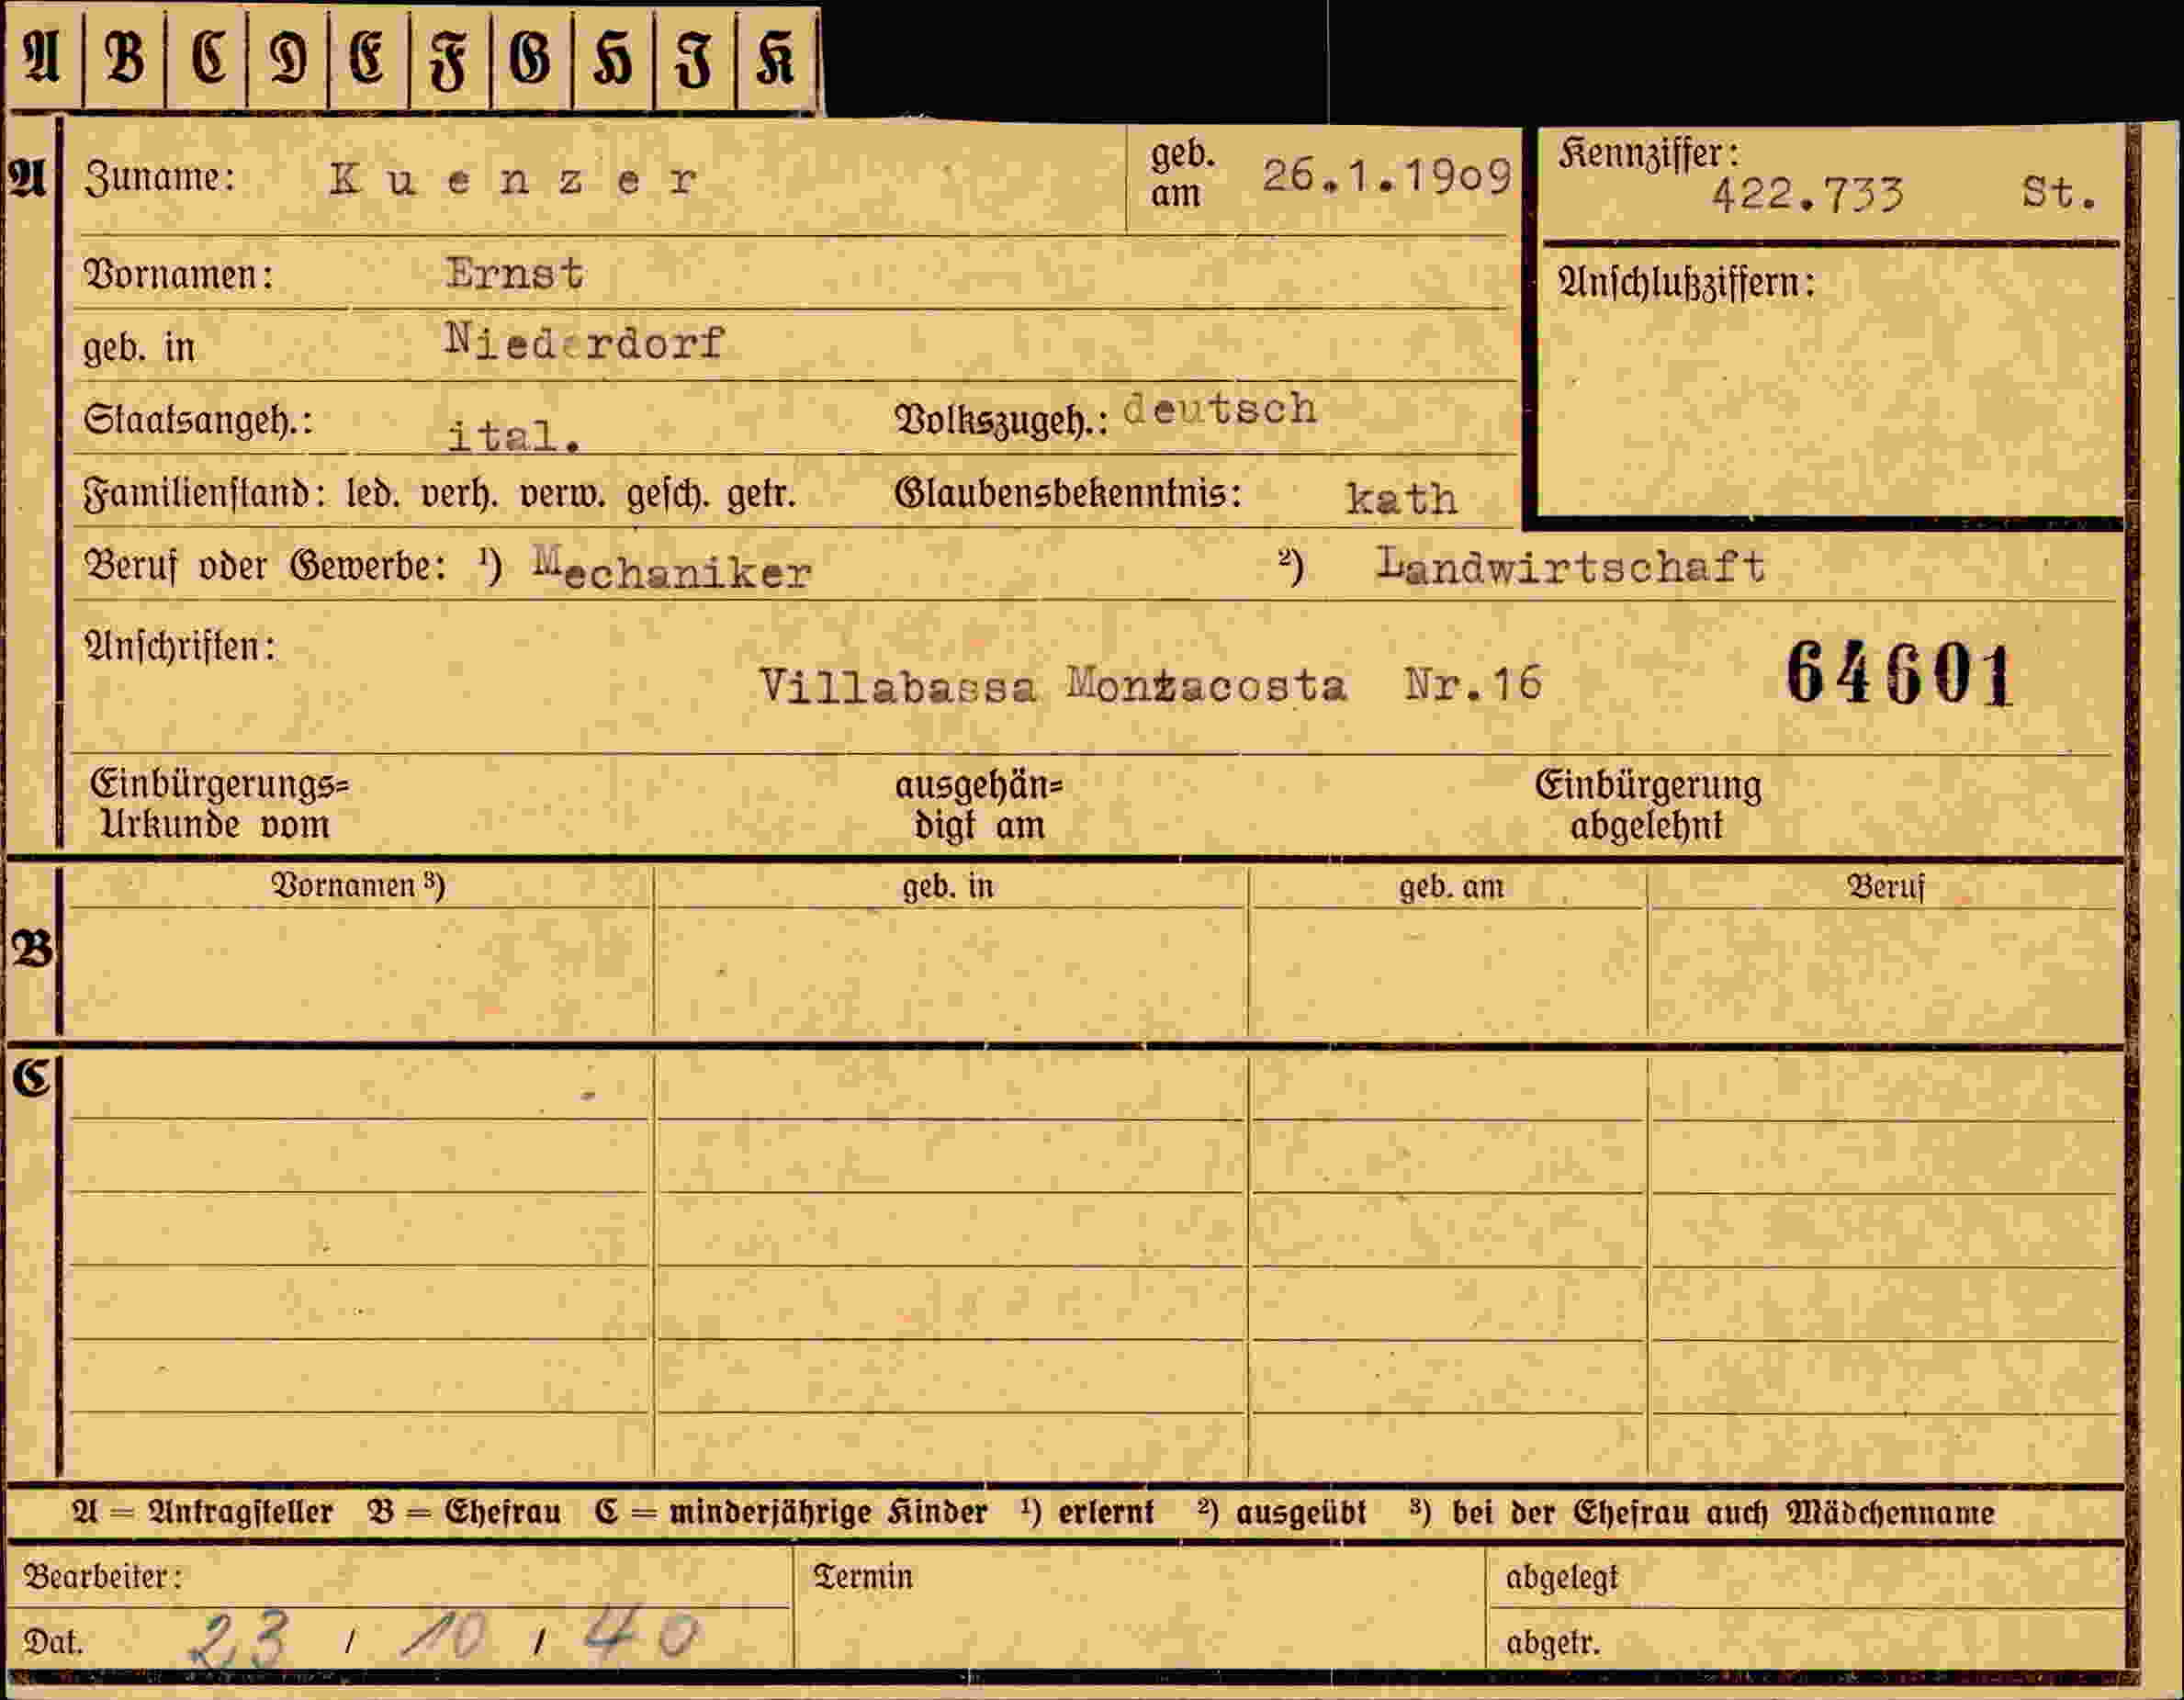 A B C D E F G H J K
A Zuname: Kuenzer geb. am 26.1.1909 Kennziffer: 422.733 St.
Vornamen: Ernst Anschlußziffern:
geb. in Niederdorf
Staatsangeh.: ital. Volkszugeh.: deutsch
Familienstand: led. verh. verw. gesch. getr. Glaubensbekenntnis: kath
Beruf oder Gewerbe: ¹) Mechaniker ²) Landwirtschaft
Anschriften:
Villabassa Montacosta Nr.16 64601
Einbürgerungs= ausgehän= Einbürgerung
Urkunde vom digt am abgelehnt
Vornamen ³) geb. in geb. am Beruf
B
C
A = Antragsteller B = Ehefrau C = minderjährige Kinder ¹) erlernt ²) ausgeübt ³) bei der Ehefrau auch Mädchenname
Bearbeiter: Termin abgelegt
Dat. 23 / 10 / 40 abgetr.